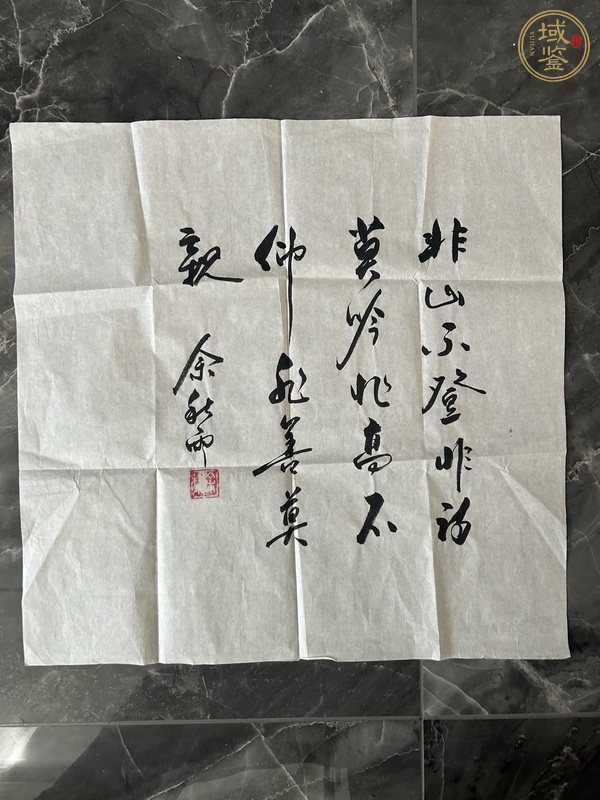 非山不登非詩
莫吟非高不
仰非善莫
親
余秋雨
域鉴
YUJIAN